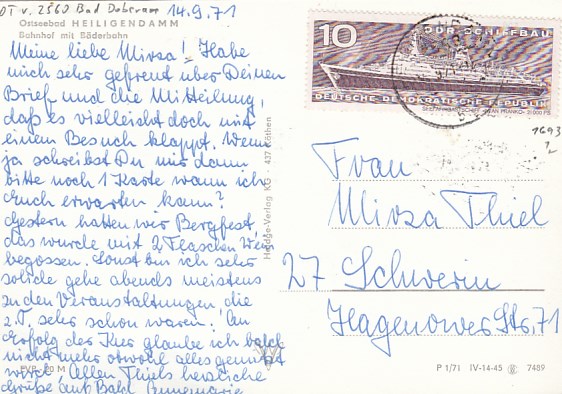 OT v. 2560 Bad Doberan 14.9.71
Ostseebad HEILIGENDAMM
Bahnhof mit Bäderbahn
Meine liebe Mirza! Habe
mich sehr gefreut über Deinen
Brief und die Mitteilung,
daß es vielleicht doch mit
einem Besuch klappt. Wenn
ja schreibst Du mir dann
bitte noch 1 Karte wann ich
Euch erwarten kann?
Gestern hatten wir Bergfest,
das wurde mit 2 Flaschen Wein
begossen. Sonst bin ich sehr
solide gehe abends meistens
zu den Veranstaltungen, die
z.T. sehr schön waren. An
Erfolg der Kur glaube ich bald
nicht mehr obwohl alles genutzt
wird. Allen Thiels herzliche
Grüße auf Bald Annemarie
EVP 20 M
437 Köthen
10
DDR SCHIFFBAU
DEUTSCHE DEMOKRATISCHE REPUBLIK
1693
Frau
Mirza Thiel
27 Schwerin
Hagenower Str. 71
P 1/71 IV-14-45 7489